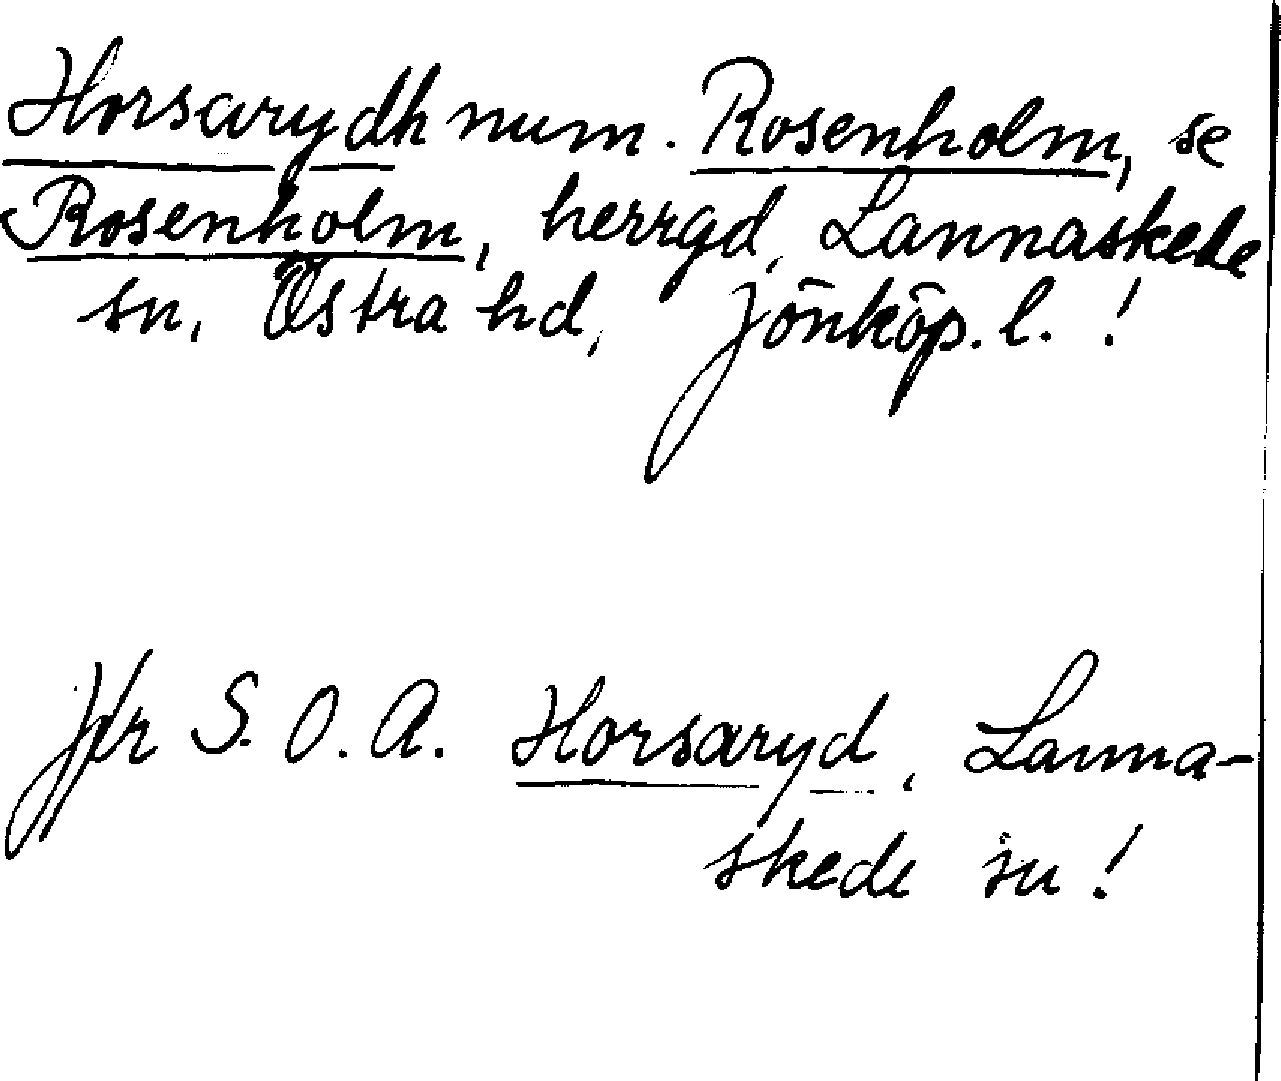 Horsarydh num. Rosenholm, se
Rosenholm, herrgd, Lannaskede
sn, Östra hd, Jönköp. l. !
Jfr S. O. A. Horsaryd, Lanna-
skede sn !